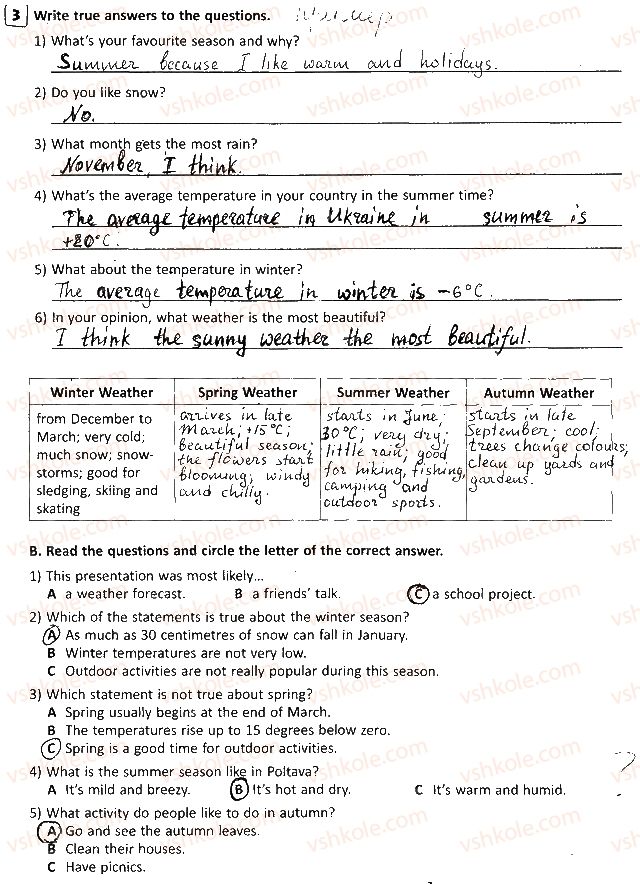 3 Write true answers to the questions.
1) What's your favourite season and why?
Summer because I like warm and holidays.
2) Do you like snow?
No.
3) What month gets the most rain?
November, I think.
4) What's the average temperature in your country in the summer time?
The average temperature in Ukraine in summer is
+20°C.
5) What about the temperature in winter?
The average temperature in winter is -6°C.
6) In your opinion, what weather is the most beautiful?
I think the sunny weather the most beautiful.
Winter Weather
from December to
March; very cold;
much snow; snow-
storms; good for
sledging, skiing and
skating
Spring Weather
arrives in late
March; +15°C;
beautiful season;
the flowers start
blooming; windy
and chilly.
Summer Weather
starts in June;
30°C; very dry;
little rain; good
for hiking, fishing,
camping and
outdoor sports.
Autumn Weather
starts in late
September; cool;
trees change colours;
clean up yards and
gardens.
B. Read the questions and circle the letter of the correct answer.
1) This presentation was most likely...
A a weather forecast. B a friends' talk. C a school project.
2) Which of the statements is true about the winter season?
A As much as 30 centimetres of snow can fall in January.
B Winter temperatures are not very low.
C Outdoor activities are not really popular during this season.
3) Which statement is not true about spring?
A Spring usually begins at the end of March.
B The temperatures rise up to 15 degrees below zero.
C Spring is a good time for outdoor activities.
4) What is the summer season like in Poltava?
A It's mild and breezy. B It's hot and dry. C It's warm and humid.
?
5) What activity do people like to do in autumn?
A Go and see the autumn leaves.
B Clean their houses.
C Have picnics.